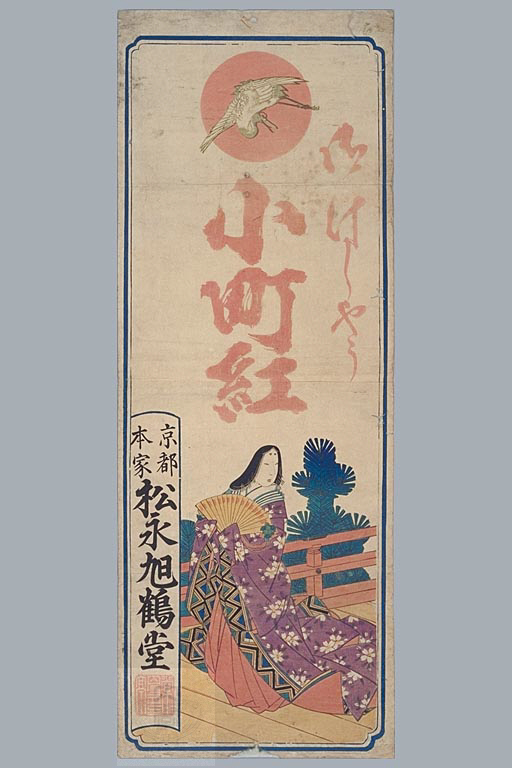 御けしやう
小町紅
京都
本家
松永旭鶴堂